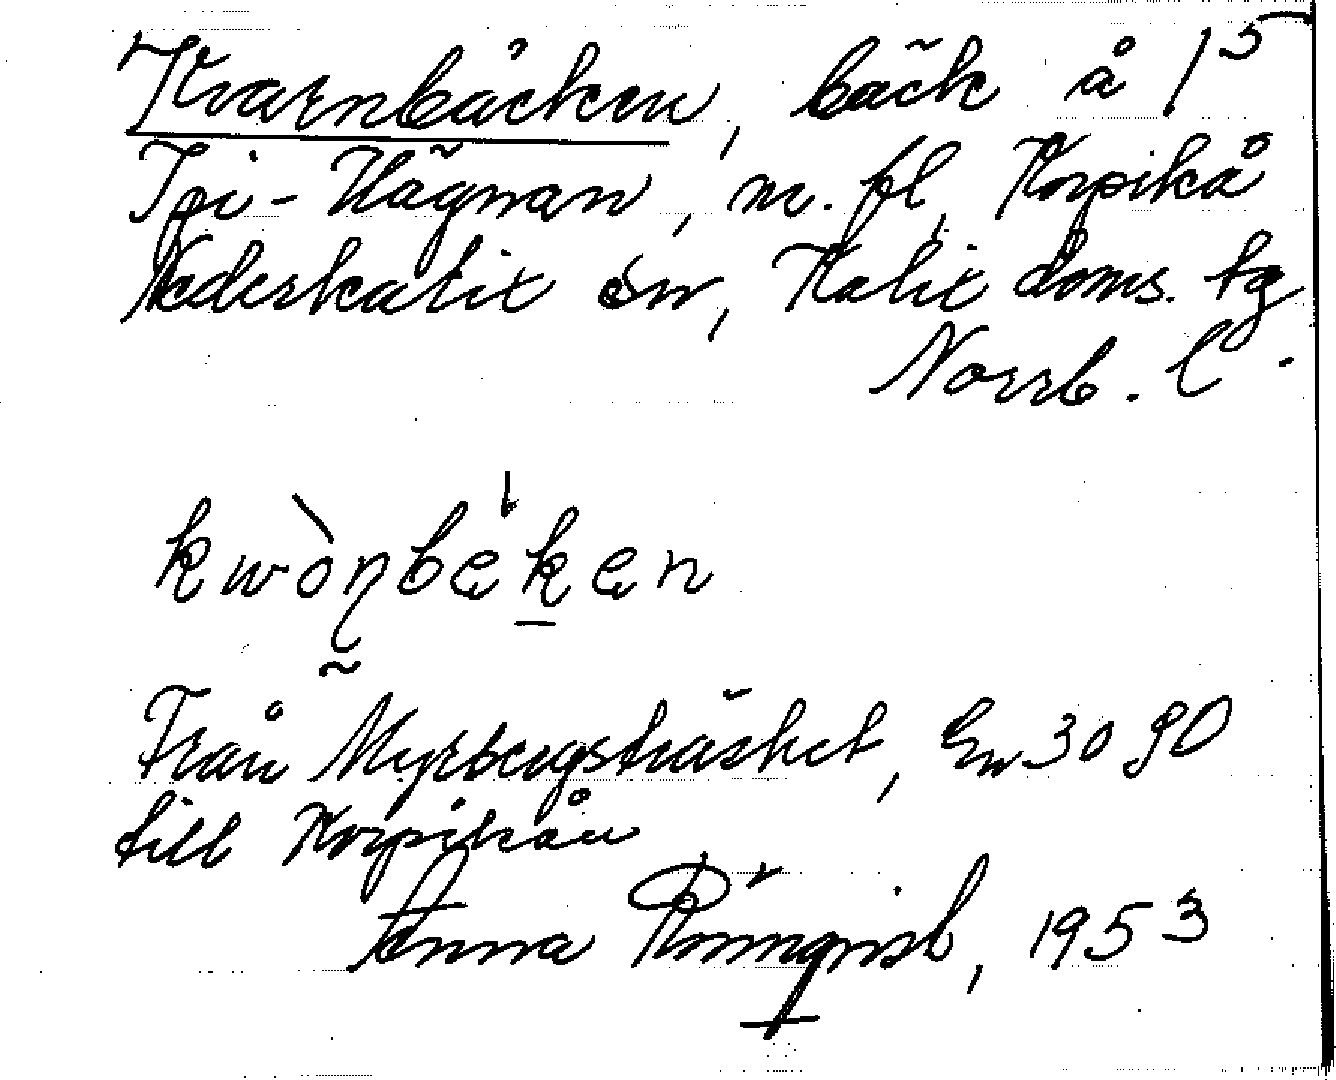 Kvarnbäcken, bäck å 15
Ipi-Hägnan, m. fl. Korpikå
Nederkalix sn, Kalix doms. tg
Norrb. l.
kwònbekęn
Från Myrbergsträsket, En 30 90
till Korpikån
Anna Rönnqvist, 1953